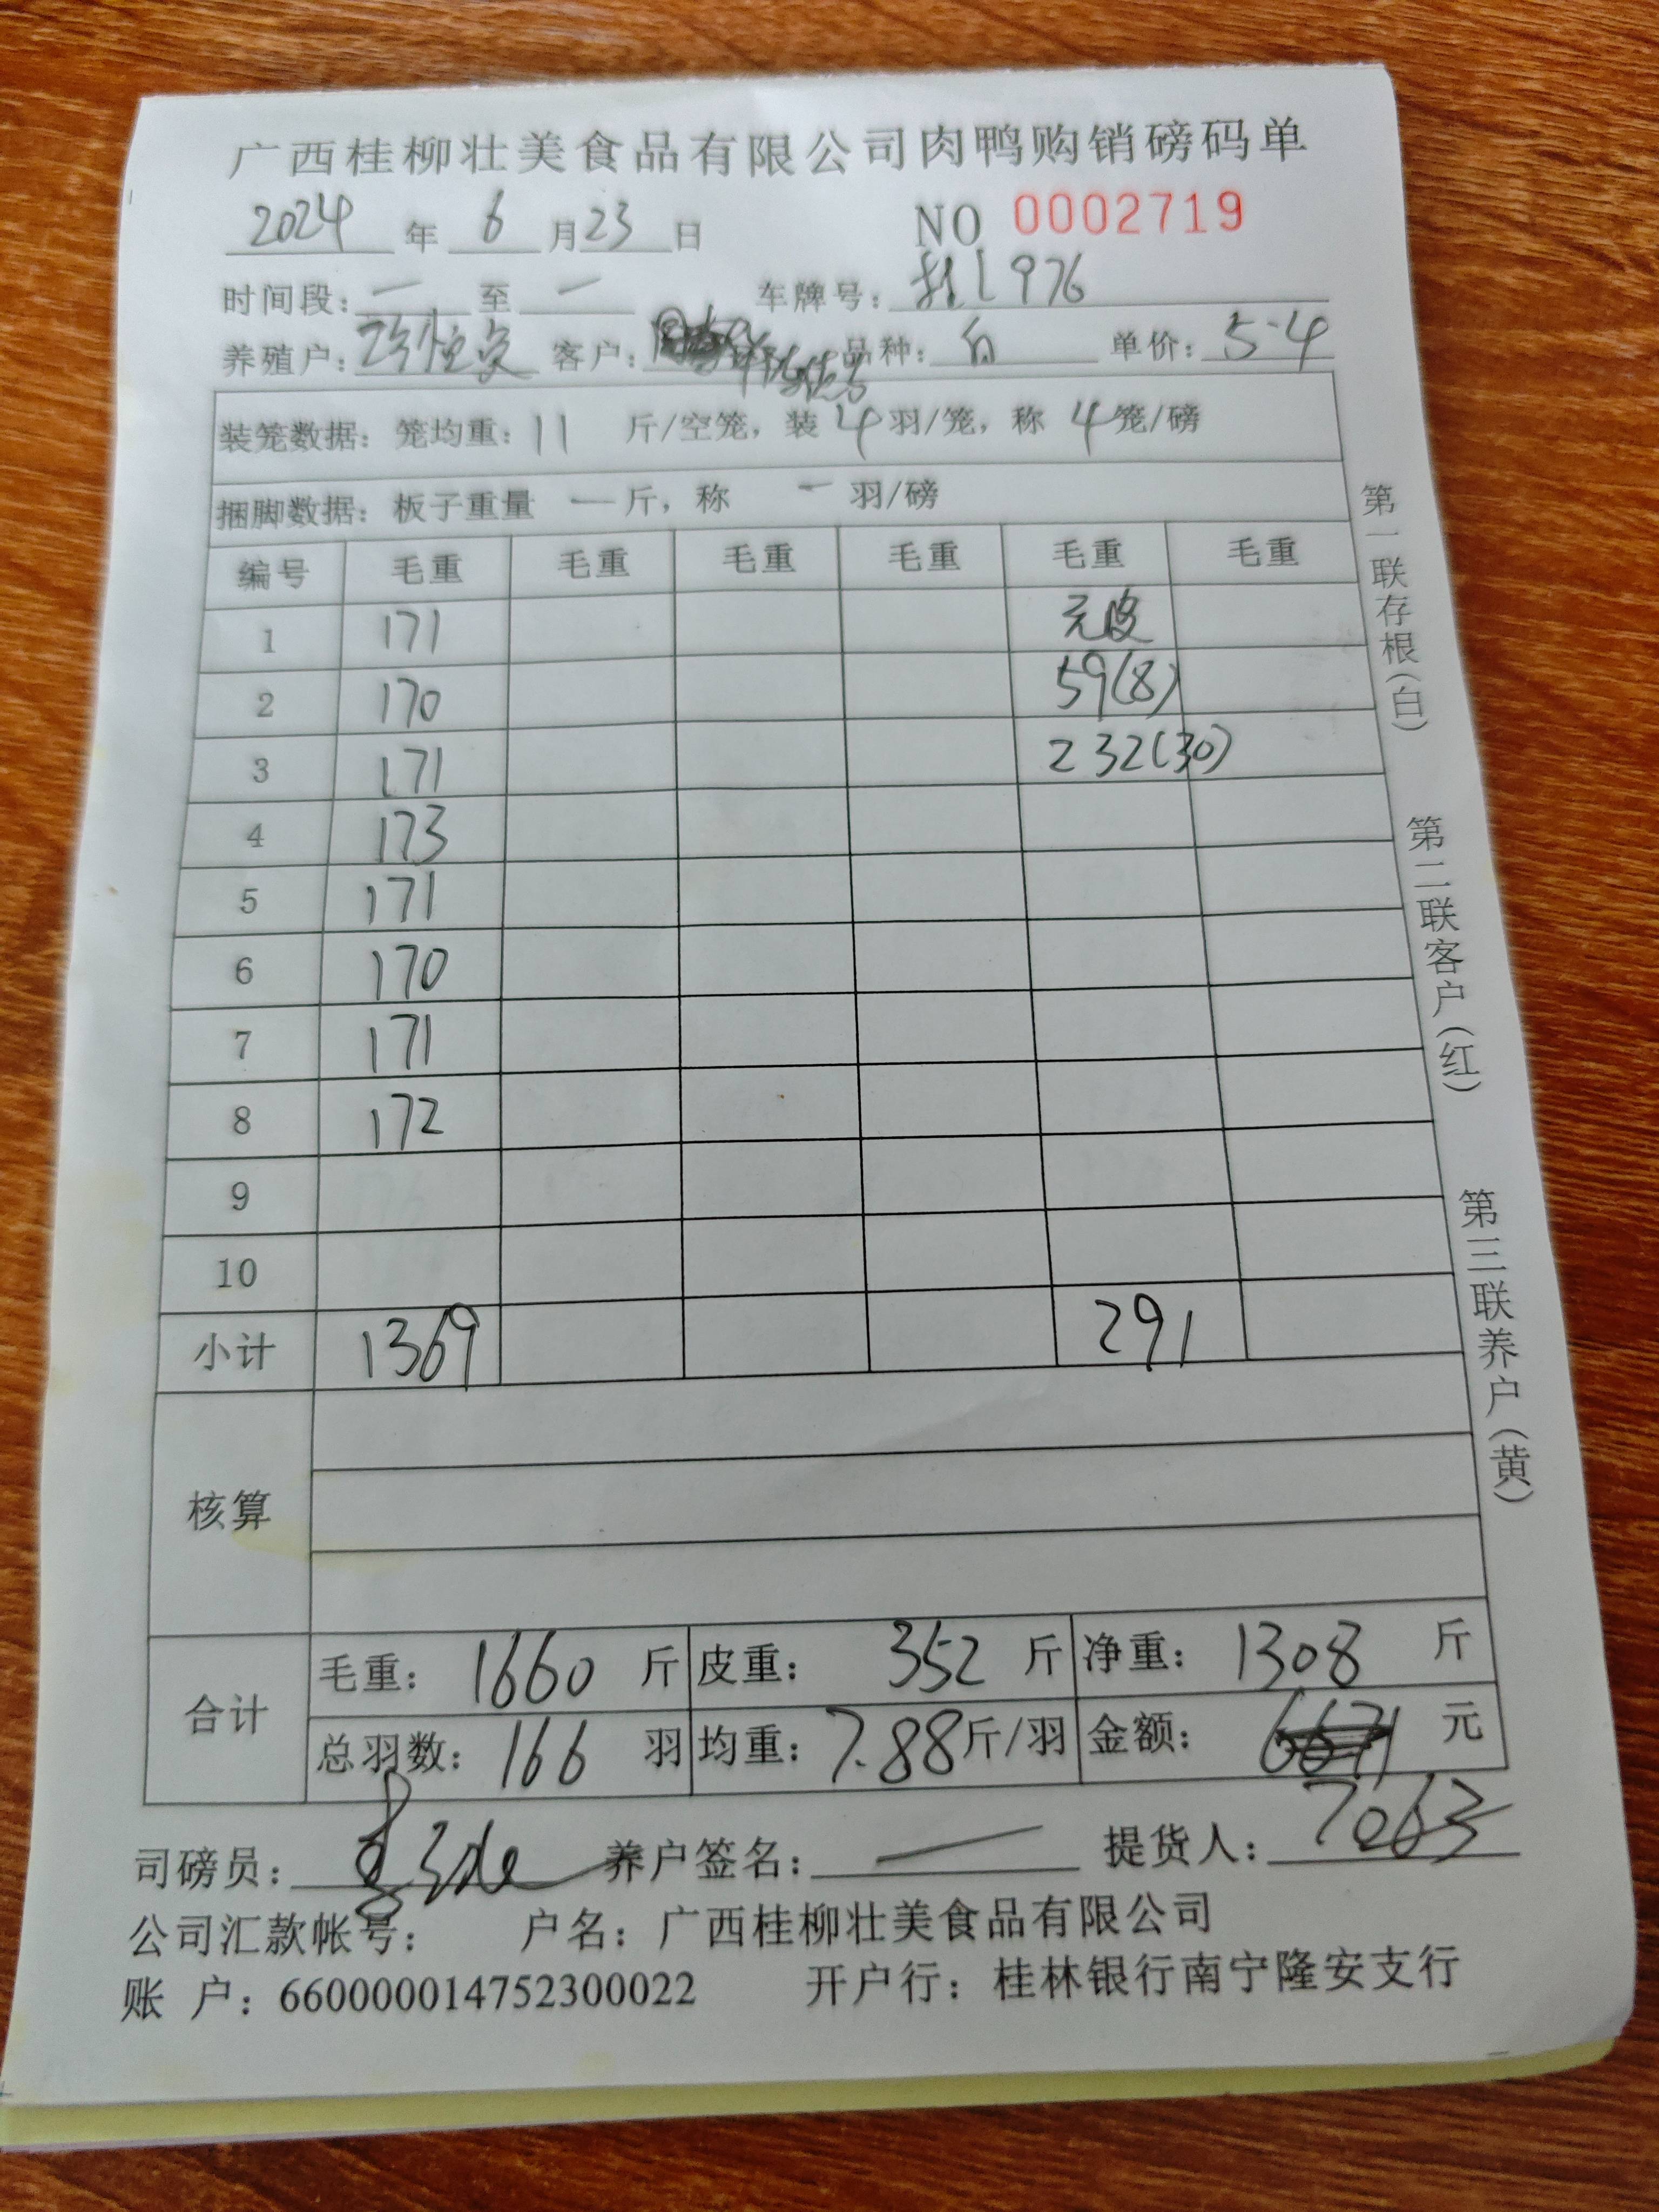 广西桂柳壮美食品有限公司肉鸭购销磅码单
2024 年 6 月 23 日 NO 0002719
时间段: 一 至 一 车牌号: 桂L976
养殖户: 客户: 品种: 白 单价: 5.4
装笼数据: 笼均重: 11 斤/空笼, 装 4 羽/笼, 称 4 笼/磅
捆脚数据: 板子重量 一 斤, 称 一 羽/磅
编号 毛重 毛重 毛重 毛重 毛重 毛重
1 171 元皮
2 170 59(8)
3 171 232(30)
4 173
5 171
6 170
7 171
8 172
9
10
小计 1369 291
核算
合计 毛重: 1660 斤 皮重: 352 斤 净重: 1308 斤
总羽数: 166 羽 均重: 7.88 斤/羽 金额: 6671 元
7063
司磅员: 养户签名: 一 提货人:
公司汇款帐号: 户名: 广西桂柳壮美食品有限公司
账 户: 660000014752300022 开户行: 桂林银行南宁隆安支行
第一联存根(白)
第二联客户(红)
第三联养户(黄)